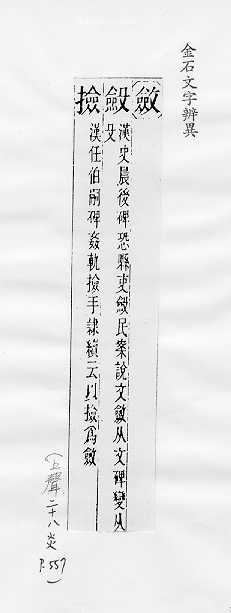 金石文字辨異
(斂)
㪘 漢史晨後碑恐縣吏㪘民案說文斂从文碑變从
殳
撿 漢任伯嗣碑姦軌撿手隸續云以撿爲斂
(上聲二十八炎 P.557)